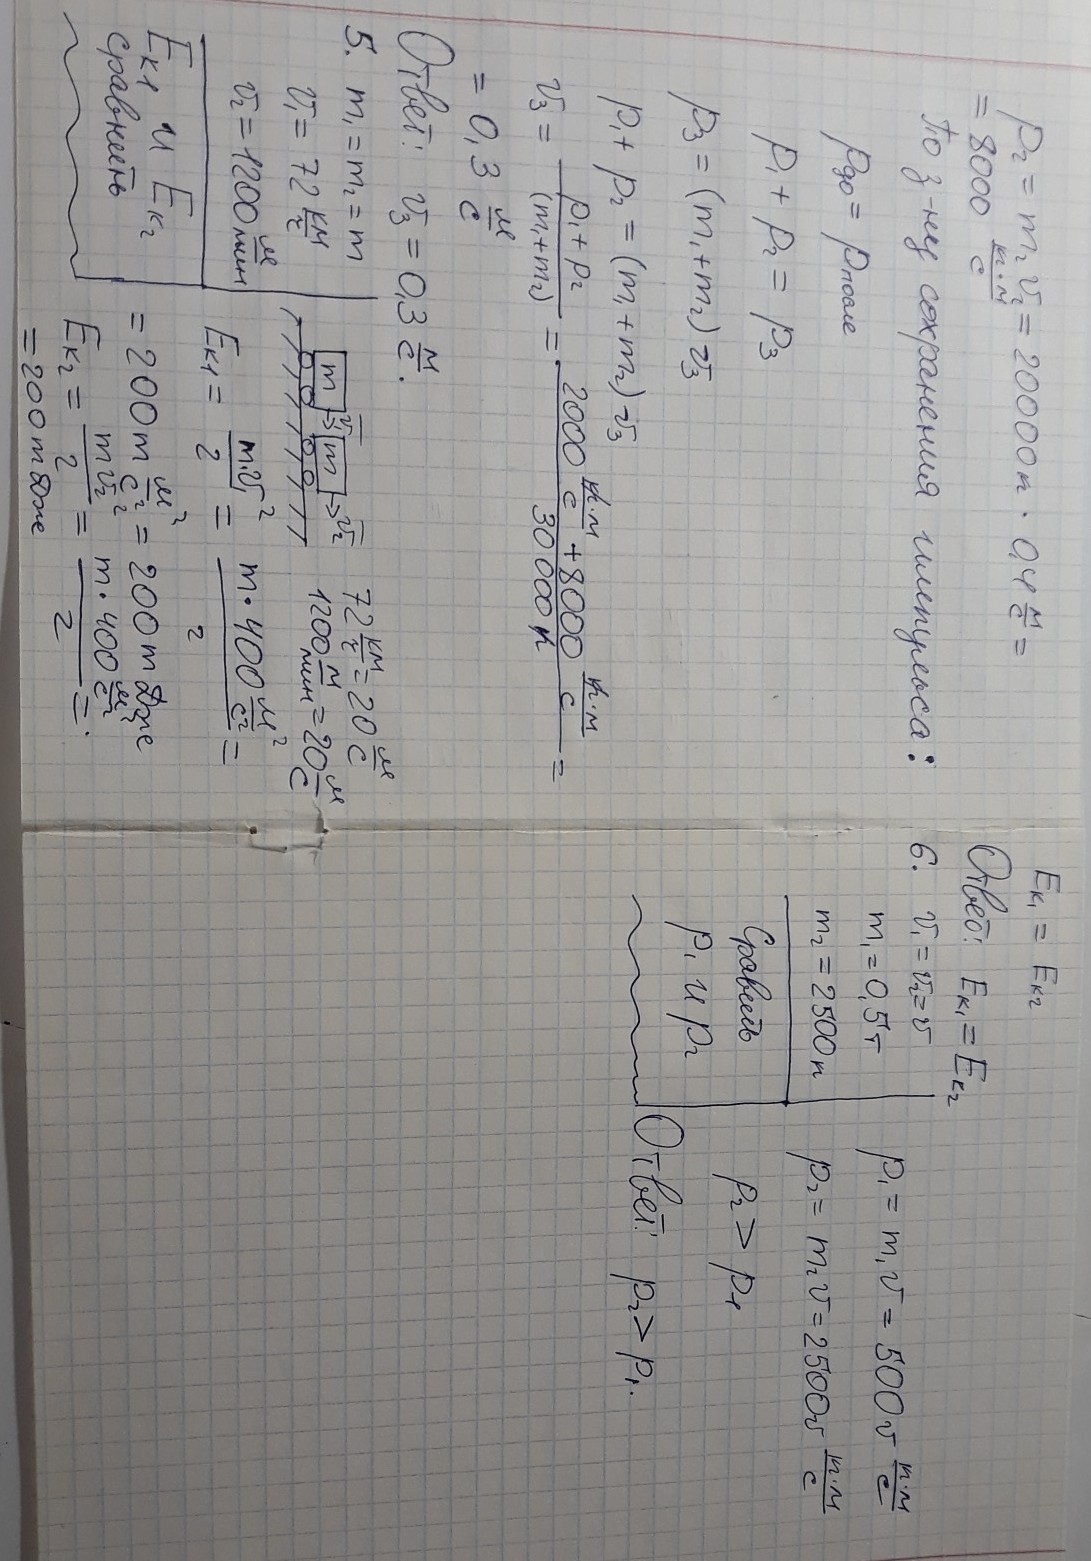 p₂ = m₂v₂ = 20000к · 0,4 м/с =
= 8000 к·м/с
По з-ну сохранения импульса:
pдо = pпосле
p₁ + p₂ = p₃
p₃ = (m₁+m₂)v₃
p₁ + p₂ = (m₁+m₂)·v₃
v₃ = (p₁+p₂)/(m₁+m₂) = (2000 к·м/с + 8000 к·м/с)/30000к =
= 0,3 м/с
Ответ: v₃ = 0,3 м/с.
5. m₁ = m₂ = m
v₁ = 72 км/г
v₂ = 1200 м/мин
Eк1 и Eк2
сравнить
m v₁ m v₂
72 км/г = 20 м/с
1200 м/мин = 20 м/с
Eк1 = m·v₁²/2 = m·400 м²/с²/2 =
= 200m м²/с² = 200m Дж
Eк2 = mv₂²/2 = m·400 м²/с²/2 =
= 200m Дж
Eк1 = Eк2
Ответ: Eк1 = Eк2
6. v₁ = v₂ = v
m₁ = 0,5т
m₂ = 2500к
Сравнить
p₁ и p₂
p₁ = m₁v = 500v к·м/с
p₂ = m₂v = 2500v к·м/с
p₂ > p₁
Ответ: p₂ > p₁.